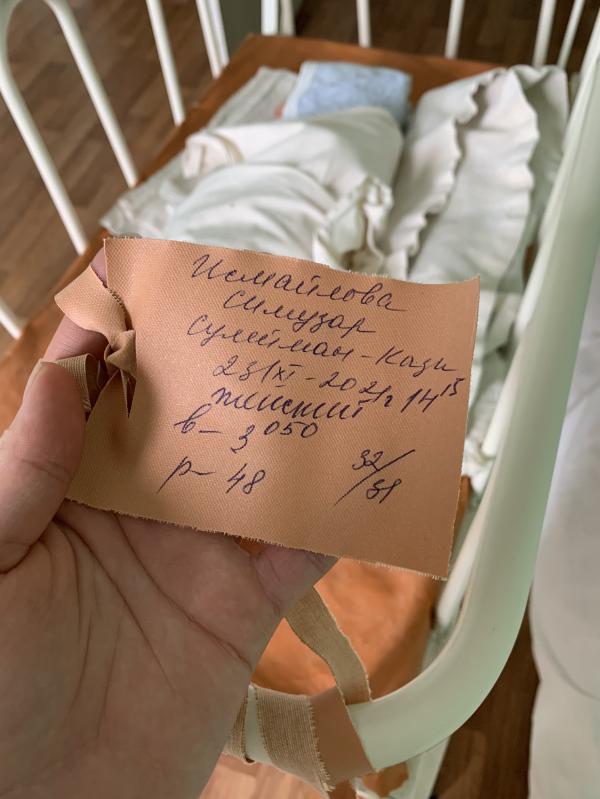 Исмайлова
Симузар
Сулейман-Кази
23/XI-2021г 14 15
женский
в- 3 050
р- 48
32/31